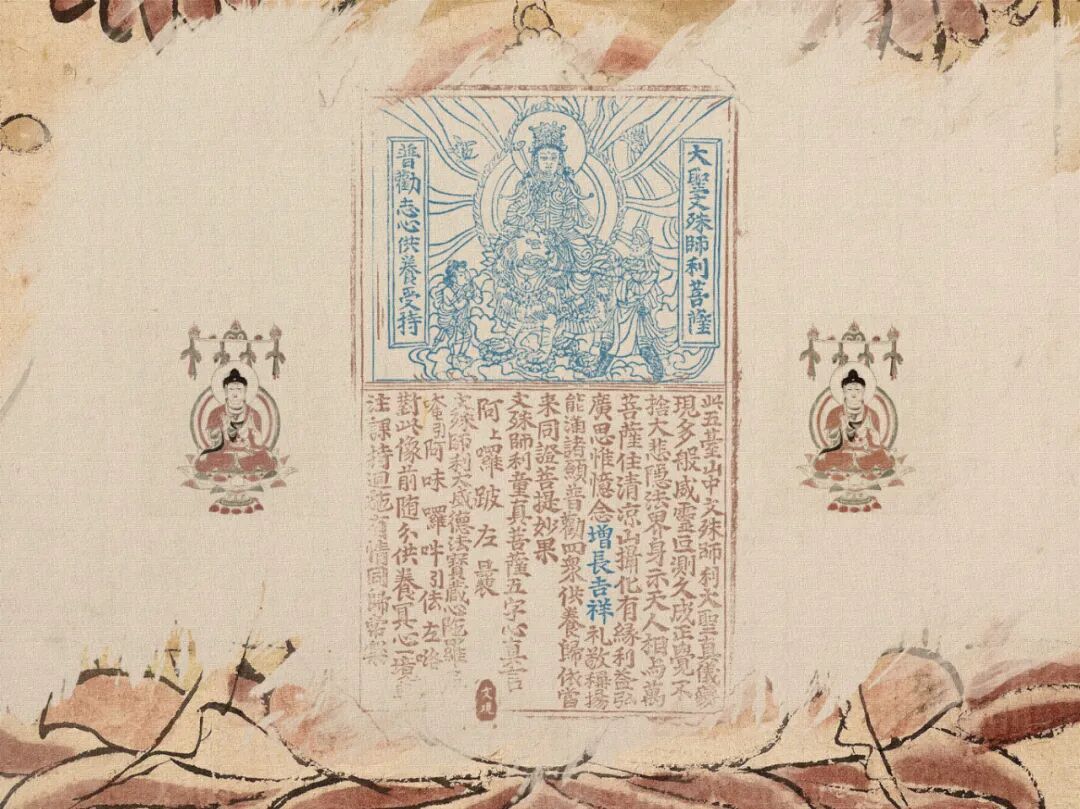 大聖文殊師利菩薩
普勸志心供養受持
此五臺山中文殊師利大聖真儀變
現多般威靈叵測久成正覺不
捨大悲隱法界身示天人相与萬
菩薩住清涼山攝化有緣利益弘
廣思惟憶念增長吉祥礼敬稱揚
能滿諸願普勸四衆供養歸依當
来同證菩提妙果
文殊師利童真菩薩五字心真言
阿上囉跛左曩
文殊師利大威德法寶藏心陁羅
唵引阿味囉吽引佉左路
對此像前随分供養冥心一境
注課持迴施有情同歸常樂